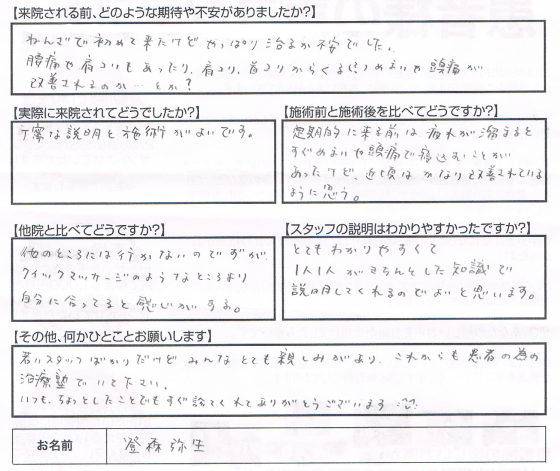 【来院される前、どのような期待や不安がありましたか?】
ねんざで初めて来たけど やっぱり治るか不安でした。
腰痛や肩こりもあったり、肩こり、首こりからくる(?)めまいや頭痛が
改善されるのか…とか?
【実際に来院されてどうでしたか?】
丁寧な説明と施術がよいです。
【施術前と施術後を比べてどうですか?】
定期的に来る前は疲れが溜まると
すぐめまいや頭痛で寝込むことが
あったけど、近頃は かなり改善されている
ように思う。
【他院と比べてどうですか?】
他のところには行かないのですが
クイックマッサージのようなところより
自分に合ってると感じがする。
【スタッフの説明はわかりやすかったですか?】
とてもわかりやすくて
1人1人がきちんとした知識で
説明してくれるのでよいと思います。
【その他、何かひとことお願いします】
若いスタッフばかりだけど みんなとても親しみがあり、これからも患者の為の
治療塾でいて下さい。
いつも、ちょっとしたことでもすぐ診てくれてありがとうございます
お名前
登森 弥生